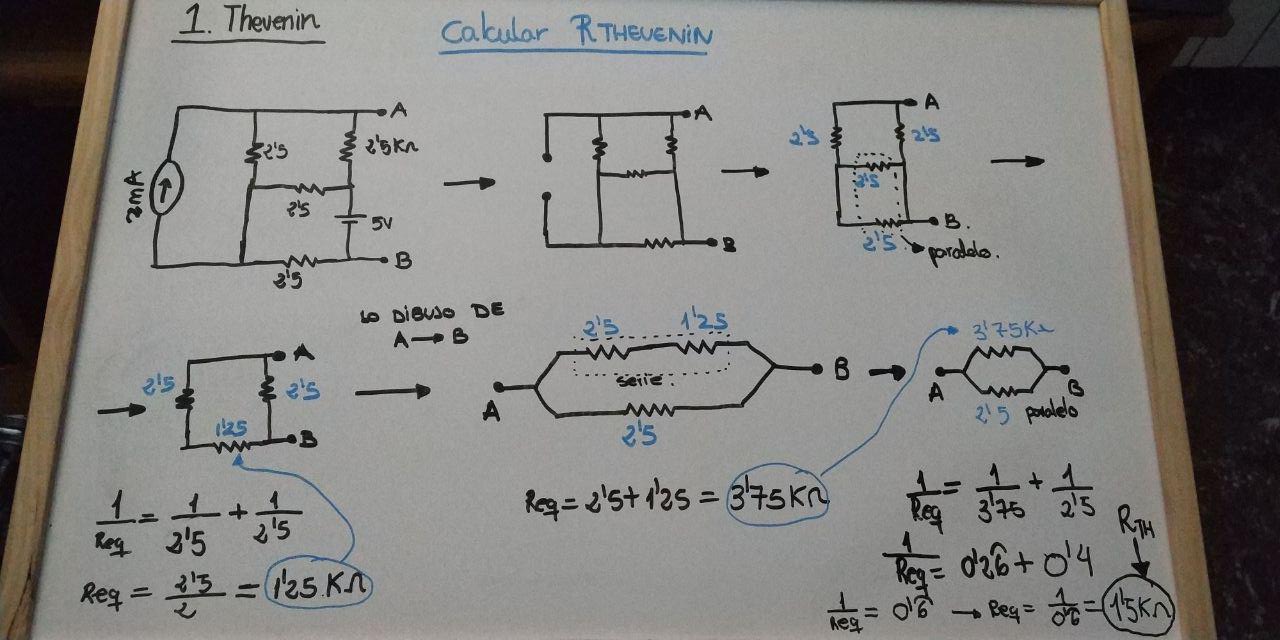 1. Thevenin
Calcular RTHEVENIN
A
2'5
2'5KΩ
2mA
2'5
5V
2'5
B
A
B
A
2'5
2'5
2'5
B.
2'5
paralelo.
LO DIBUJO DE
A → B
A
2'5
2'5
1'25
B
2'5
1'25
serie.
A
B
2'5
3'75KΩ
A
B
2'5 paralelo
1/Req = 1/2'5 + 1/2'5
Req = 2'5/2 = 1'25 KΩ
Req = 2'5 + 1'25 = 3'75 KΩ
1/Req = 1/3'75 + 1/2'5
RTH
1/Req = 0'26̂ + 0'4
1/Req = 0'6̂ → Req = 1/0'6̂ = 1'5KΩ